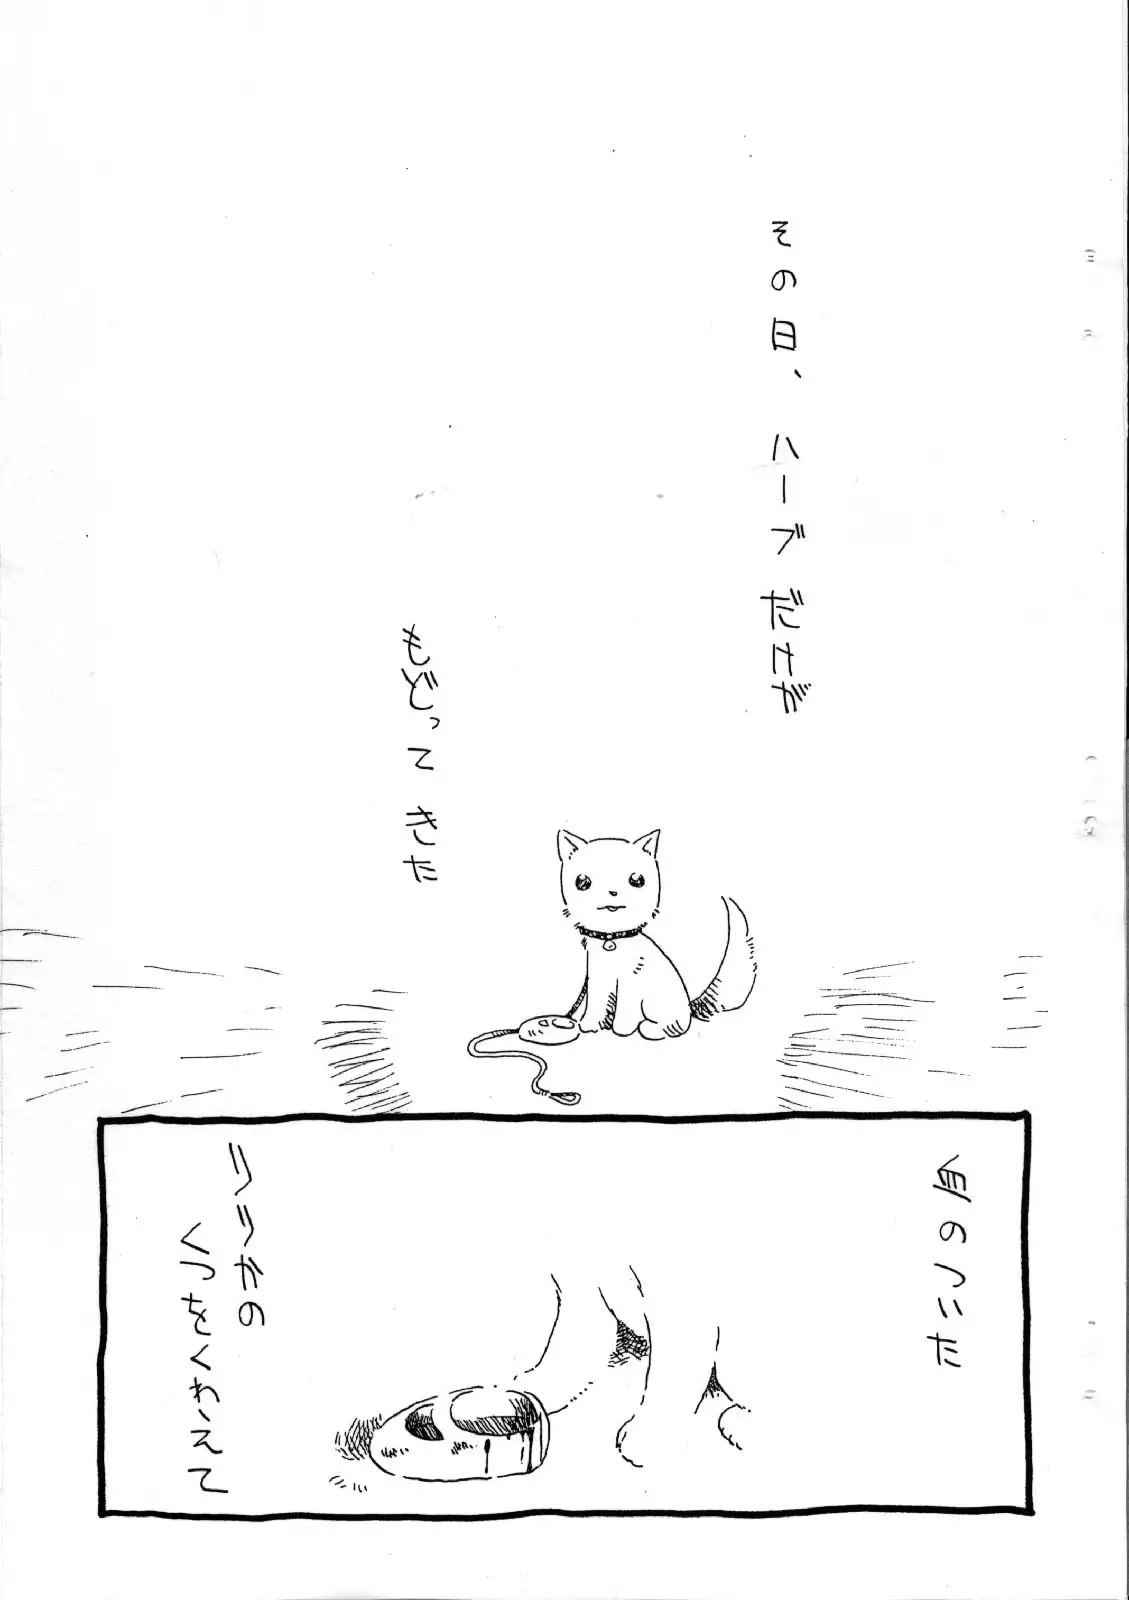 その日、ハーブだけが
もどってきた
血のついた
の
くつをくわえて